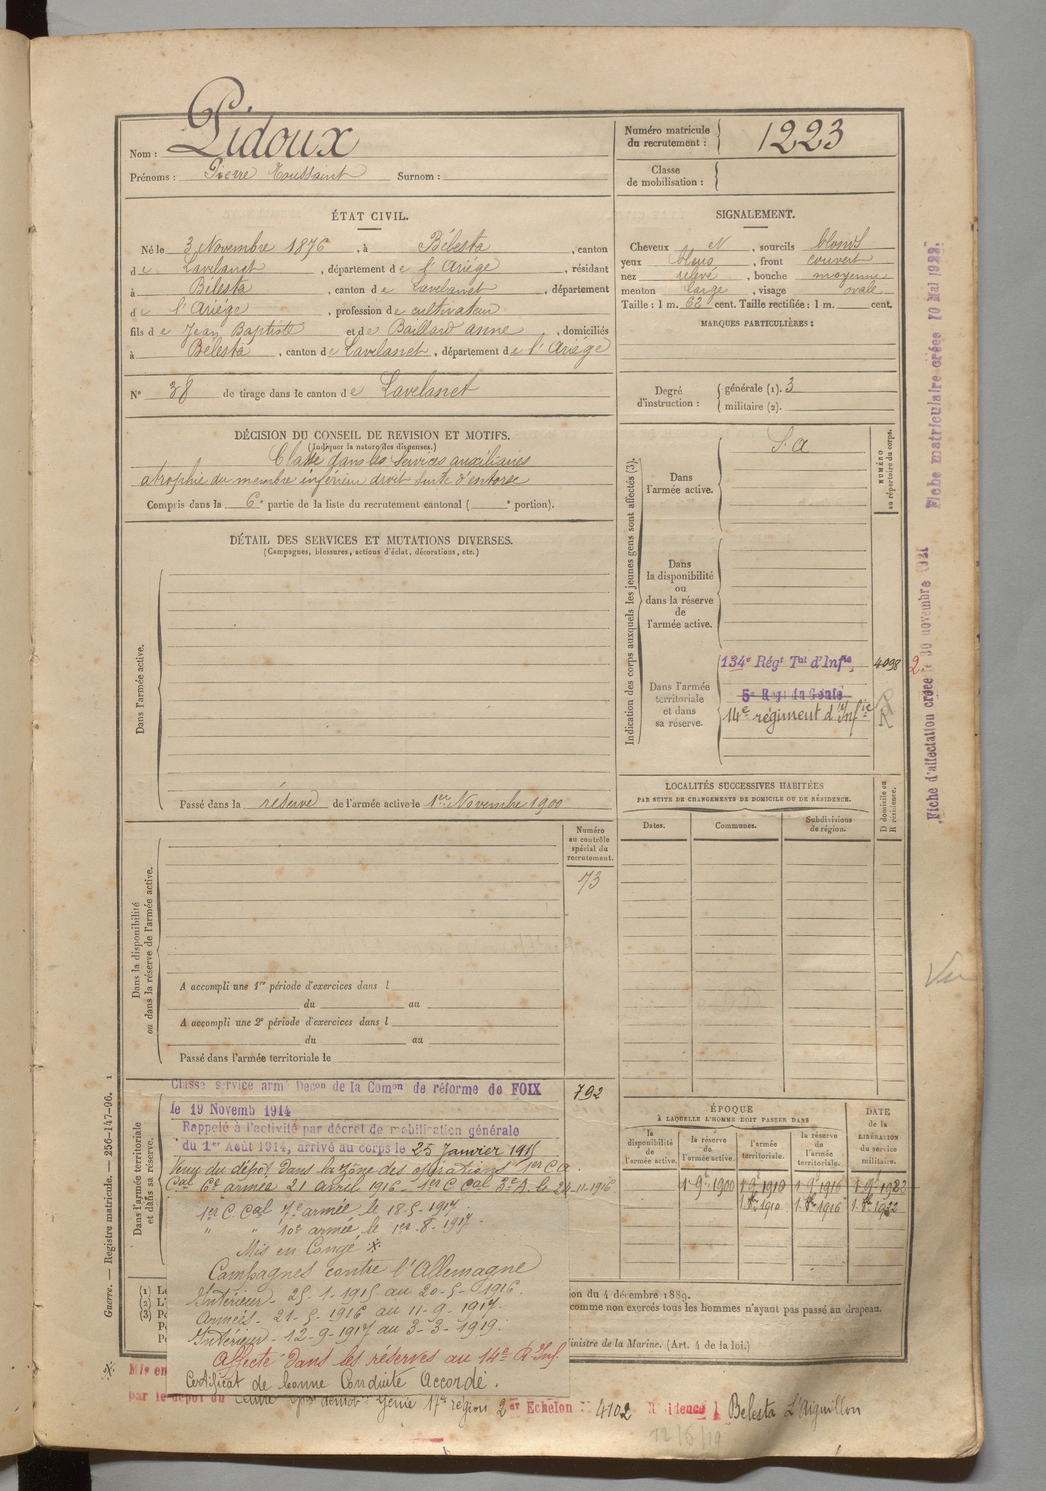 Nom : Pidoux
Prénoms : Pierre Toussaint Surnom :
Numéro matricule du recrutement : 1223
Classe de mobilisation :
ÉTAT CIVIL.
Né le 3 Novembre 1876, à Bélesta, canton
de Lavelanet, département de l'Ariége, résidant
à Bélesta, canton de Lavelanet, département
de l'Ariége, profession de cultivateur
fils de Jean Baptiste et de Baillard anne, domiciliés
à Bélesta, canton de Lavelanet, département de l'Ariége
N° 38 de tirage dans le canton de Lavelanet
SIGNALEMENT.
Cheveux N, sourcils blonds
yeux bleus, front couvert
nez relevé, bouche moyenne
menton large, visage ovale
Taille : 1 m. 62 cent. Taille rectifiée : 1 m. cent.
MARQUES PARTICULIÈRES :
Degré d'instruction : générale (1). 3
militaire (2).
DÉCISION DU CONSEIL DE REVISION ET MOTIFS.
(Indiquer la nature des dispenses.)
Classé dans les Services auxiliaires
atrophie du membre inférieur droit suite d'entorse
Compris dans la 6e partie de la liste du recrutement cantonal ( e portion).
DÉTAIL DES SERVICES ET MUTATIONS DIVERSES.
(Campagnes, blessures, actions d'éclat, décorations, etc.)
Dans l'armée active.
Passé dans la réserve de l'armée active le 1er Novembre 1900
Indication des corps auxquels les jeunes gens sont affectés (3).
NUMÉRO au répertoire du corps.
Dans l'armée active.
S. a
Dans la disponibilité ou dans la réserve de l'armée active.
Dans l'armée territoriale et dans sa réserve.
134e Régt Tal d'Infie 4098
5e Regt du Génie
14e régiment d'Infie
2.
Fiche d'affectation créée le 30 novembre 1921
Fiche matriculaire créée 10 Mai 1922.
LOCALITÉS SUCCESSIVES HABITÉES
PAR SUITE DE CHANGEMENTS DE DOMICILE OU DE RÉSIDENCE.
Dates. Communes. Subdivisions de région. D domicile ou R résidence.
Numéro au contrôle spécial du recrutement.
73
Dans la disponibilité ou dans la réserve de l'armée active.
A accompli une 1re période d'exercices dans l
du au
A accompli une 2e période d'exercices dans l
du au
Passé dans l'armée territoriale le
Vu
Dans l'armée territoriale et dans sa réserve.
792
Classé service armé Décon de la Comon de réforme de FOIX
le 19 Novemb 1914
Rappelé à l'activité par décret de mobilisation générale
du 1er Août 1914, arrivé au corps le 25 Janvier 1915
Venu du dépôt dans la zone des opérations 1er C a
Cal 6e armée 21 avril 1916. 1er C Cal 3e A. le 24-11-1916
1er C. Cal 7e armée le 18-5-1917
" " 10e armée le 1er-8-1917.
Mis en Congé ※
Campagnes contre l'Allemagne
Intérieur - 25-1-1915 au 20-5-1916.
Armées - 21-5-1916 au 11-9-1917.
Intérieur - 12-9-1917 au 3-3-1919.
Affecté dans les réserves au 14e R. Inf.
Certificat de bonne Conduite Accordé.
ÉPOQUE
À LAQUELLE L'HOMME DOIT PASSER DANS
DATE DE LA LIBÉRATION du service militaire.
la disponibilité de l'armée active. la réserve de l'armée active. l'armée territoriale. la réserve de l'armée territoriale.
1.9bre 1900 1.9bre 1910 1.9bre 1916
1.8bre 1910 1.8bre 1916 1.8bre 1922
ion du 4 décembre 1889.
comme non exercés tous les hommes n'ayant pas passé au drapeau.
inistre de la Marine. (Art. 4 de la loi.)
Guerre. — Registre matricule. — 256-147-96. 1
※ Mis en
par le dépôt du Centre démob. Génie 17e région 2er Echelon N° 4102 Résidence Belesta L'Aiguillon
12/6/19